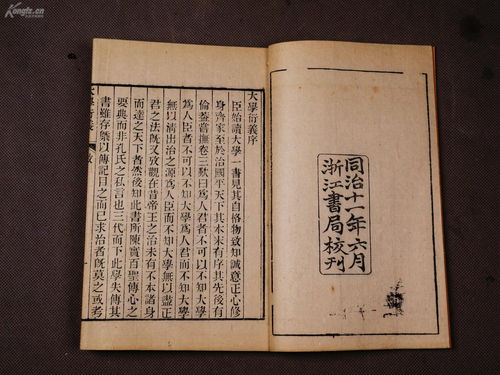 Kongfz.cn
同治十一年六月
浙江書局校刊
大學衍義序
臣始讀大學一書見其自格物致知誠意正心修
身齊家至於治國平天下其本末有序其先後有
倫蓋嘗撫卷三歎曰爲人君者不可以不知大學
爲人臣者不可以不知大學爲人君而不知大學
無以清出治之源爲人臣而不知大學無以盡正
君之法旣又攷觀在昔帝王之治未有不本諸身
而達之天下者然後知此書所陳實百聖傳心之
要典而非孔氏之私言也三代而下此學失傳其
書雖存槩以傳記目之而已求治者旣莫之或考
大學衍義